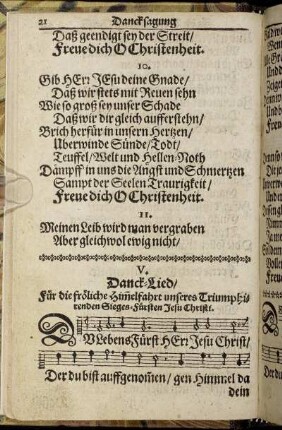 21 Dancksagung
Daß geendigt sey der Streit/
Freue dich O Christenheit.
10.
Gib HErr JEsu deine Gnade/
Daß wir stets mit Reuen sehn
Wie so groß sey unser Schade
Daß wir dir gleich aufferstehn/
Brich herfür in unsern Hertzen/
Uberwinde Sünde/Todt/
Teuffel/Welt und Hellen-Noth
Dämpff in uns die Angst und Schmertzen
Sampt der Seelen Traurigkeit/
Freue dich O Christenheit.
11.
Meinen Leib wird man vergraben
Aber gleichwol ewig nicht/
V.
Danck-Lied/
Für die fröliche Him̃elfahrt unseres Triumphi-
renden Sieges-Fürsten Jesu Christi.
DU LebensFürst HErr Jesu Christ/
Der du bist auffgenom̃en/gen Himmel da
dein